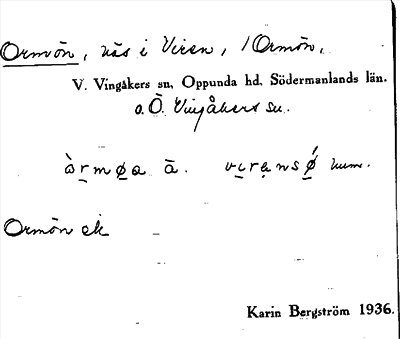 Ormön, näs i Viren, / Ormön,
V. Vingåkers sn, Oppunda hd, Södermanlands län.
o. Ö. Vingåkers sn.
àrmøa ā. viransǿ hum.
Ormön ek –
Karin Bergström 1936.